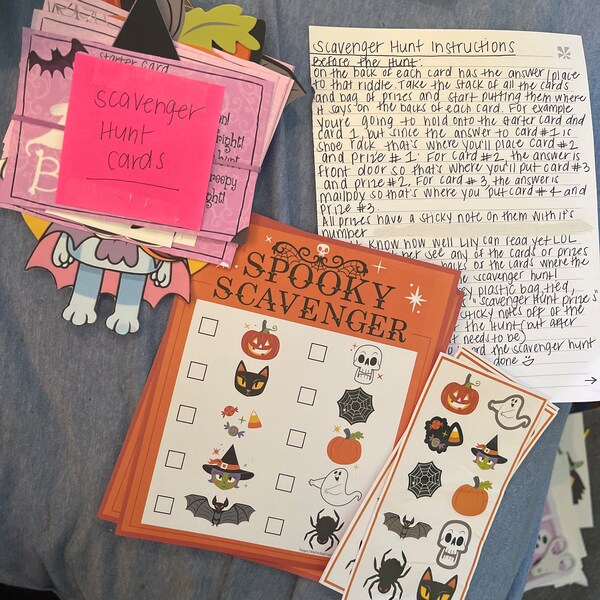 Starter Card
scavenger
Hunt
cards
ght!
hunt
creepy
ght!
B
SPOOKY
SCAVENGER
Scavenger Hunt Instructions
Before the Hunt:
on the back of each card has the answer/place
to that riddle. Take the stack of all the cards
and bag of prizes and start putting them where
it says on the backs of each card. For example
youre going to hold onto the starter card and
card 1, but since the answer to card #1 is
shoe rack that's where you'll place card #2
and prize #1. For card #2, the answer is
front door so that's where you'll put card #3
and prize #2. For card #3, the answer is
mailbox so that's where you put card #4 and
prize #3.
All prizes have a sticky note on them with it's
number
know how well Lily can read yet LOL
her see any of the cards or prizes
backs of the cards where the
the scavenger hunt!
plastic bag tied,
"scavenger Hunt prizes"
sticky notes off of the
the hunt (but after
t needs to be)
card the scavenger hunt
done